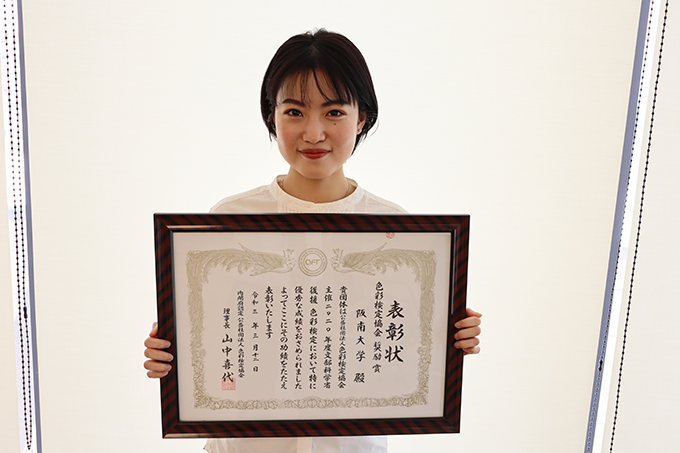 表彰状
色彩検定協会 奨励賞
阪南大学 殿
貴団体は公益社団法人色彩検定協会
主催二〇二〇年度文部科学省
後援 色彩検定において特に
優秀な成績をおさめられました
よってここにその功績をたたえ
表彰いたします
令和三年三月十二日
内閣府認定 公益社団法人 色彩検定協会
理事長 山中喜代